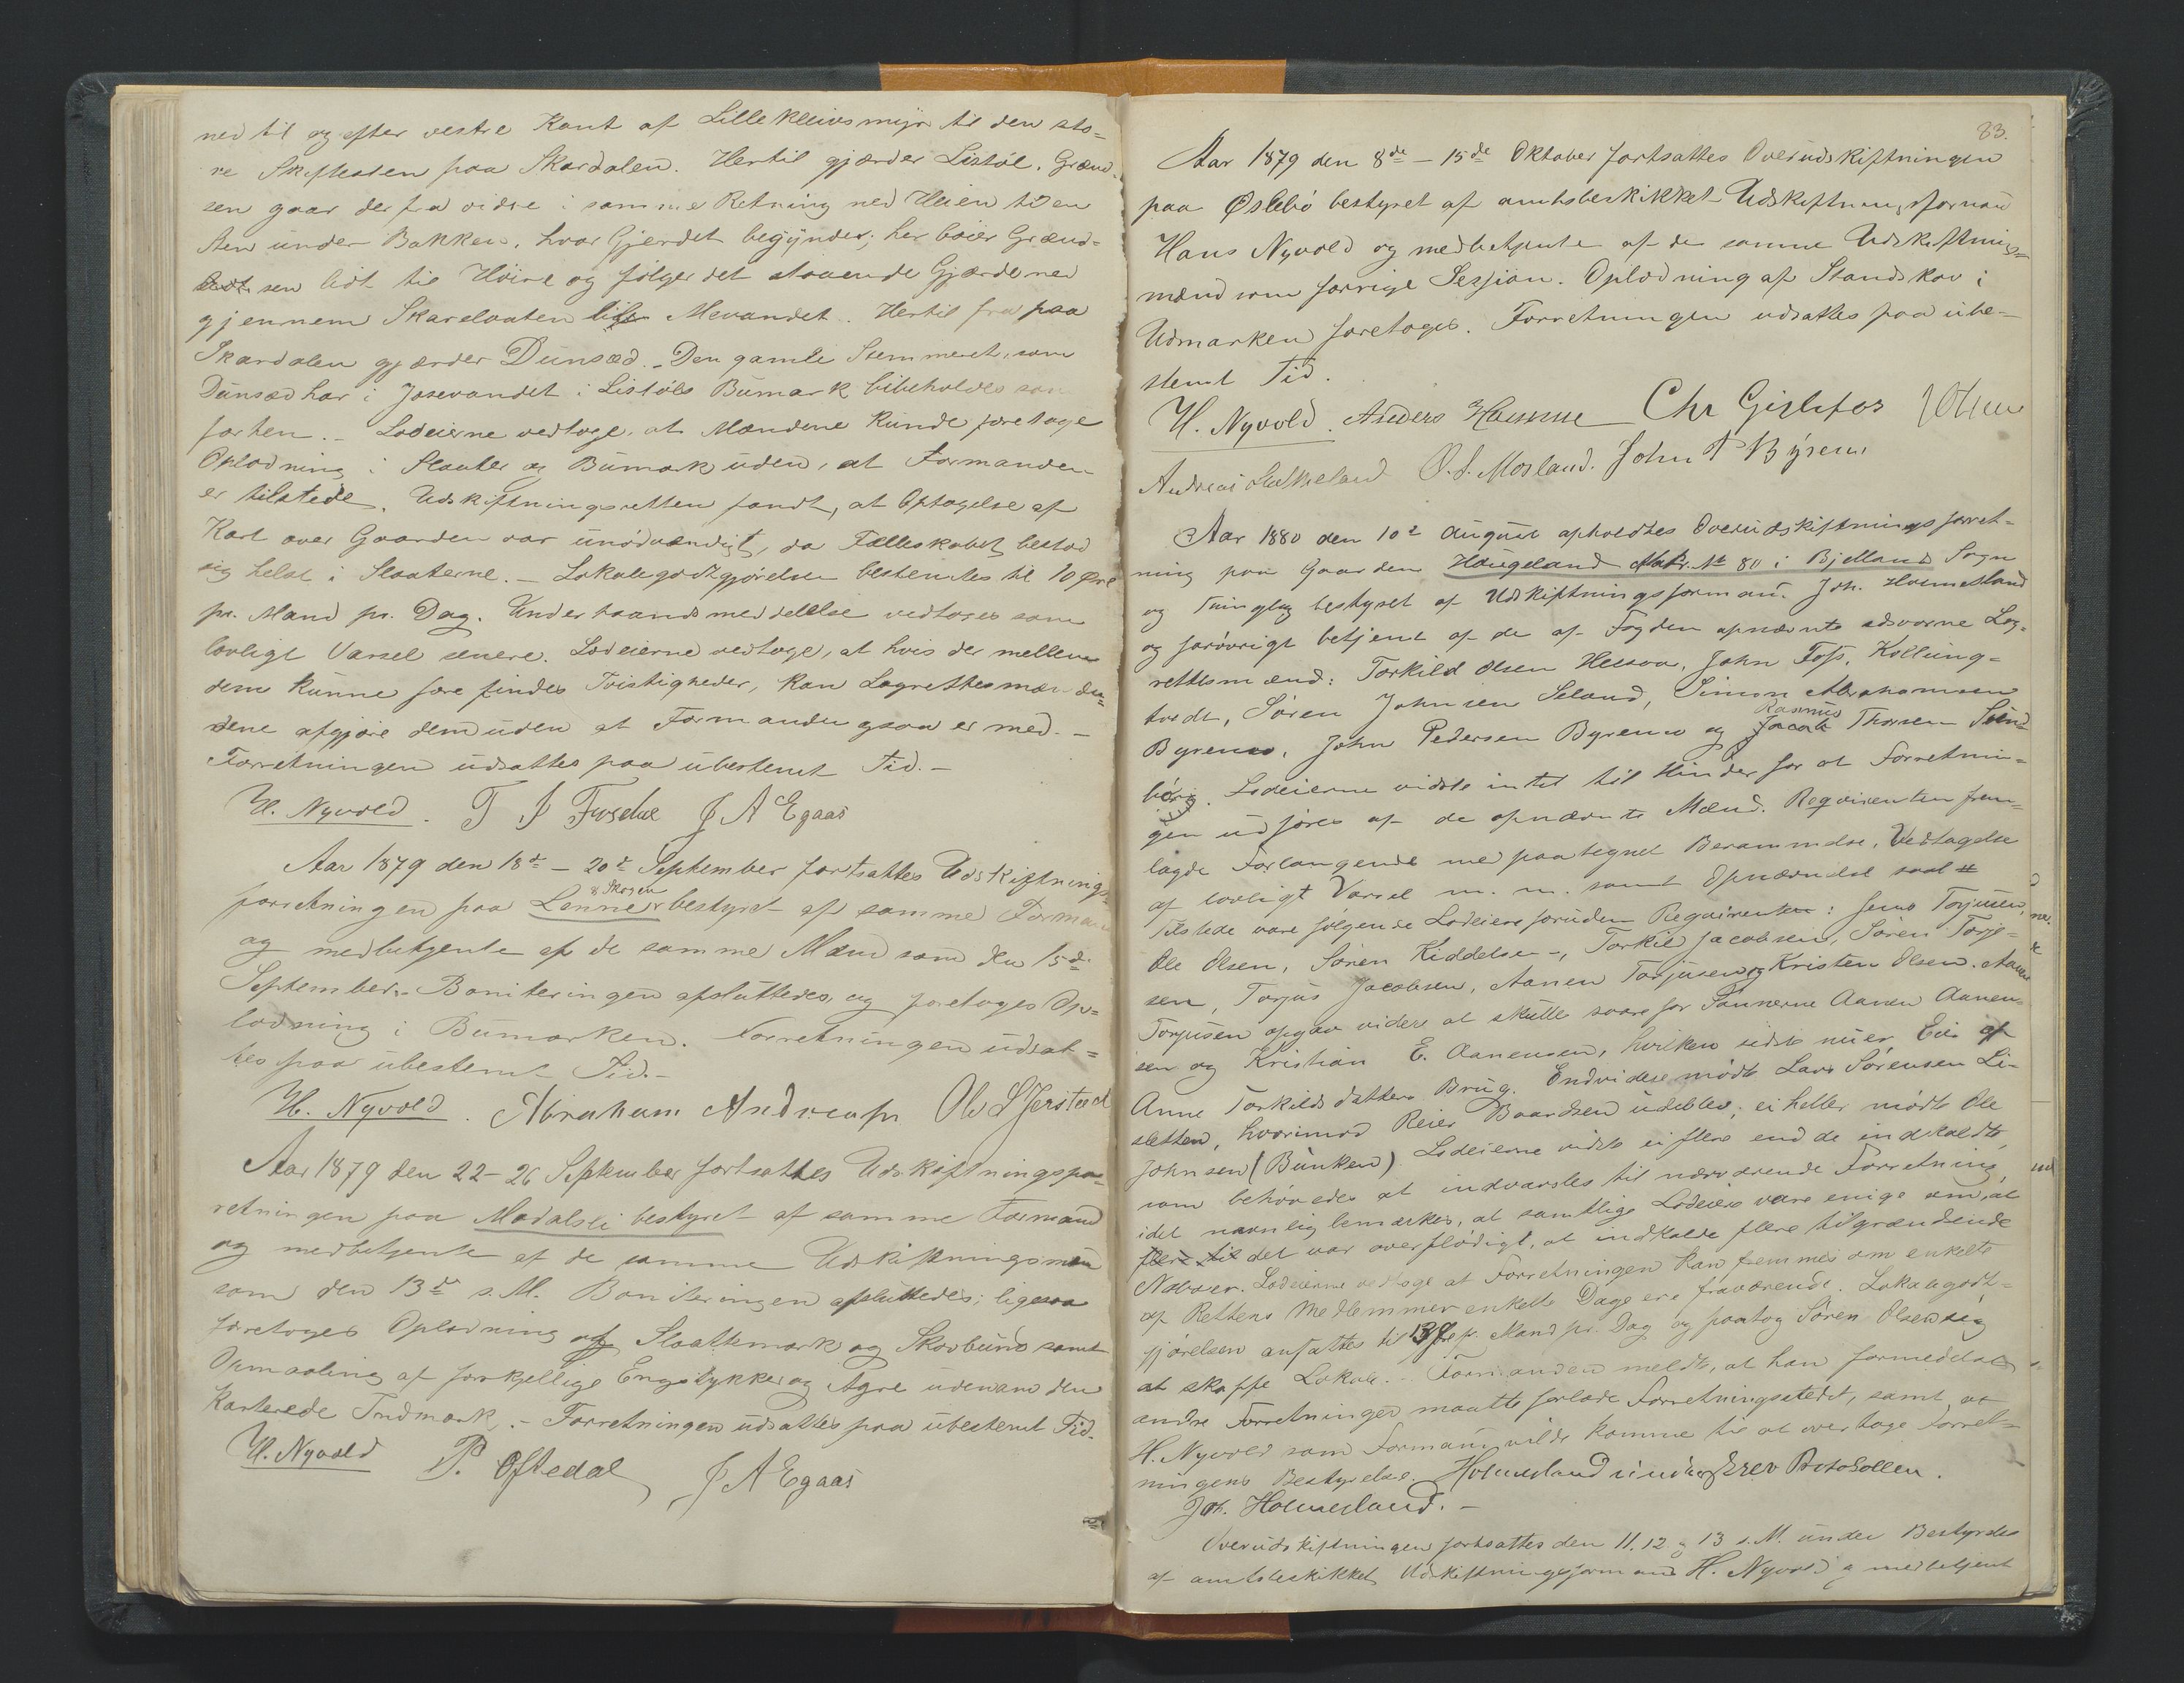 ned til og efter vestre Kant af Lillekleivsmyr til den sto=
re Skiftesten paa Skardalen. Hertil gjærder Listöl. Grænd=
sen gaar derfra vidre i samme Retning ned Heien til en
Sten under Bakken, hvor Gjerdet begynder; her böier Grænd=
sen lidt til Höire og følger det staaende Gjærde ned
gjennem Skareslaaten til Mevandet. Hertil fra paa
Skardalen gjærder Dunsæd. Den gamle Stemmeret, som
Dunsæd har i Josevandet i Listöls Bumark bibeholdes som
forhen. – Lodeierne vedtoge, at Mændene kunde foretage
Oplodning i Slaater og Bumark uden, at Formanden
er tilstede. Udskiftningsretten fandt, at Optagelse af
Kart over Gaarden var unödvendigt, da Fælleskabet bestod
sig helst i Slaaterne. – Lokalegodtgjörelsen bestemtes til 10 Øre
pr. Mand pr. Dag. Underhaandsmeddelelse vedtoges som
lovligt Varsel senere. Lodeierne vedtoge, at hvis der mellem
dem kunne forefindes Tvistigheder, kan Lagrettesmæn
dene afgjöre dem uden at Formanden ogsaa er med. –
Forretningen udsattes paa ubestemt Tid. –
H. Nyvold. T J Fuskeland J A Egaas
Aar 1879 den 18de – 20de September fortsattes Udskiftnings=
& Skogen
forretningen paa Lenner bestyret af samme Formand
og medbetjente af de samme Mænd som den 15de
September. Boniteringen afsluttedes, og foretoges Op=
lodning i Bumarken. Forretningen udsat=
tes paa ubestemt Tid. –
H. Nyvold. Abraham Andreasen Ole S Jerstad
Aar 1879 den 22–26 September fortsattes Udskiftningsfor=
retningen paa Modalsli bestyret af samme Formand
og medbetjente af de samme Udskiftningsmæn
som den 13de s.M. Boniteringen afsluttedes; ligesaa
foretoges Oplodning af Slaattemark og Skovbund samt
Opmaaling af forskjellige Engstykker og Agre udenom den
karterede Indmark. – Forretningen udsattes paa ubestemt Tid.
H. Nyvold P. Oftedal J A Egaas
83.
Aar 1879 den 8de – 15de Oktober fortsattes Overudskiftningen
paa Øslebö bestyret af amtsbeskikket Udskiftningsformand
Hans Nyvold og medbetjente af de samme Udskiftnings=
mænd som forrige Session. Oplodning af Standskov i
Udmarken foretoges. Forretningen udsattes paa ube=
stemt Tid.
H. Nyvold. Anders Homme Chr Gislefos
Andreas O. S. Mosland. John P Byremo
Aar 1880 den 10de August afholdtes Overudskiftningsforret=
ning paa Gaarden Haugeland Matr. No 80 i Bjelland Sogn
og Thinglag bestyret af Udskiftningsformand Joh. Holmesland
og forövrigt betjent af de af Fogden opnævnte edsvorne Lag=
rettesmænd: Torkild Olsen Hessaa, John Foss, Kollung=
tvedt, Sören Johnsen Seland, Simon Abrahamsen
Rasmus
Byremo, John Pedersen Byremo og Jacob Thorsen Sund
börg. Lodeierne vidste intet til Hinder for at Forretnin=
gen udföres af de opnævnte Mænd. Requirenten frem=
lagde Forlangende med paategnet Berammelse, Vedtagelse
af lovligt Varsel m. m. samt Opnævnelse
Tilstede vare følgende Lodeiere foruden Requirenten: Jens Torjusen,
Ole Olsen, Sören Kiddelsen, Torkil Jacobsen, Sören Torje=
sen, Torjus Jacobsen, Aanen Torjusen og Kristen Olsen. Aanen
Torjusen opgav videre at skulle svare for Sönnerne Aanen Aanen=
sen og Kristian E. Aanensen, hvilken sidste nu er Eier af
Anne Torkildsdatters Brug. Endvidere mödte Lars Sörensen Li=
sletten, hvorimod Reier Baardsen udeblev; ei heller mödte Ole
Johnsen (Bunken). Lodeierne vidste ei flere end de indkaldte,
som behövedes at indvarsles til nærværende Forretning,
idet navnlig bemærkes, at samtlige Lodeiere vare enige om, at
flere til det var overflödigt, at indkalde flere tilgrændsende
Naboer. Lodeierne vedtoge at Forretningen kan fremmes om enkelte
af Rettens Medlemmer enkelte Dage ere fraværende. Lokalegodt=
gjörelsen ansattes til 13 Øre pr. Mand pr. Dag og paatog Sören Olsen sig
at skaffe Lokale. – Formanden meldte, at han formedelst
andre Forretninger maatte forlade Forretningsstedet, samt at
H. Nyvold som Formand vilde komme til at overtage Forret=
ningens Bestyrelse. Holmesland underskrev Protokollen.
Joh. Holmesland. –
Overudskiftningen fortsattes den 11. 12 og 13 s.M. under Bestyrelse
af amtsbeskikket Udskiftningsformand H. Nyvold og medbetjent